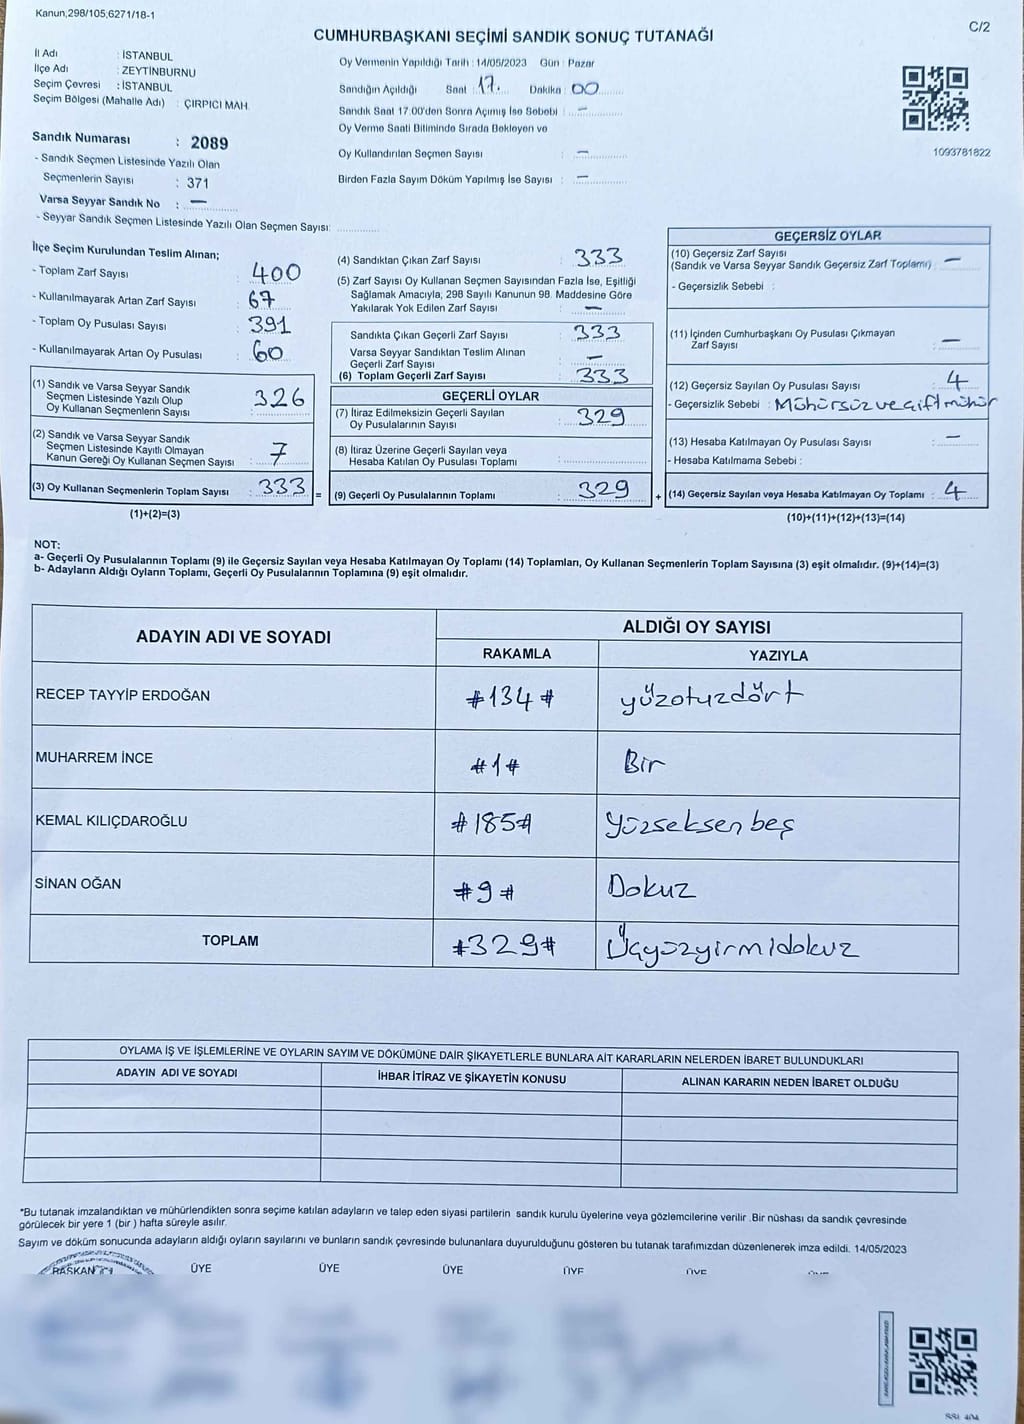 Kanun,298/105;6271/18-1
C/2
CUMHURBAŞKANI SEÇİMİ SANDIK SONUÇ TUTANAĞI
İl Adı : İSTANBUL
İlçe Adı : ZEYTİNBURNU
Seçim Çevresi : İSTANBUL
Seçim Bölgesi (Mahalle Adı) : ÇIRPICI MAH.
Sandık Numarası : 2089
- Sandık Seçmen Listesinde Yazılı Olan
Seçmenlerin Sayısı : 371
Varsa Seyyar Sandık No : —
- Seyyar Sandık Seçmen Listesinde Yazılı Olan Seçmen Sayısı:
Oy Vermenin Yapıldığı Tarih : 14/05/2023 Gün : Pazar
Sandığın Açıldığı Saat : 17. Dakika : 00
Sandık Saat 17.00'den Sonra Açımış İse Sebebi : —
Oy Verme Saati Bitiminde Sırada Bekleyen ve
Oy Kullandırılan Seçmen Sayısı : —
Birden Fazla Sayım Döküm Yapılmış İse Sayısı : —
1093781822
İlçe Seçim Kurulundan Teslim Alınan;
- Toplam Zarf Sayısı : 400
- Kullanılmayarak Artan Zarf Sayısı : 67
- Toplam Oy Pusulası Sayısı : 391
- Kullanılmayarak Artan Oy Pusulası : 60
(1) Sandık ve Varsa Seyyar Sandık
Seçmen Listesinde Yazılı Olup
Oy Kullanan Seçmenlerin Sayısı : 326
(2) Sandık ve Varsa Seyyar Sandık
Seçmen Listesinde Kayıtlı Olmayan
Kanun Gereği Oy Kullanan Seçmen Sayısı : 7
(3) Oy Kullanan Seçmenlerin Toplam Sayısı : 333 =
(1)+(2)=(3)
(4) Sandıktan Çıkan Zarf Sayısı : 333
(5) Zarf Sayısı Oy Kullanan Seçmen Sayısından Fazla İse, Eşitliği
Sağlamak Amacıyla, 298 Sayılı Kanunun 98. Maddesine Göre
Yakılarak Yok Edilen Zarf Sayısı : —
Sandıkta Çıkan Geçerli Zarf Sayısı : 333
Varsa Seyyar Sandıktan Teslim Alınan
Geçerli Zarf Sayısı : —
(6) Toplam Geçerli Zarf Sayısı : 333
GEÇERLİ OYLAR
(7) İtiraz Edilmeksizin Geçerli Sayılan
Oy Pusulalarının Sayısı : 329
(8) İtiraz Üzerine Geçerli Sayılan veya
Hesaba Katılan Oy Pusulası Toplamı :
(9) Geçerli Oy Pusulalarının Toplamı : 329 +
GEÇERSİZ OYLAR
(10) Geçersiz Zarf Sayısı
(Sandık ve Varsa Seyyar Sandık Geçersiz Zarf Toplamı) : —
- Geçersizlik Sebebi :
(11) İçinden Cumhurbaşkanı Oy Pusulası Çıkmayan
Zarf Sayısı : —
(12) Geçersiz Sayılan Oy Pusulası Sayısı : 4
- Geçersizlik Sebebi : Mühürsüz ve çift mühür
(13) Hesaba Katılmayan Oy Pusulası Sayısı : —
- Hesaba Katılmama Sebebi :
(14) Geçersiz Sayılan veya Hesaba Katılmayan Oy Toplamı : 4
(10)+(11)+(12)+(13)=(14)
NOT:
a- Geçerli Oy Pusulalarının Toplamı (9) ile Geçersiz Sayılan veya Hesaba Katılmayan Oy Toplamı (14) Toplamları, Oy Kullanan Seçmenlerin Toplam Sayısına (3) eşit olmalıdır. (9)+(14)=(3)
b- Adayların Aldığı Oyların Toplamı, Geçerli Oy Pusulalarının Toplamına (9) eşit olmalıdır.
ADAYIN ADI VE SOYADI
ALDIĞI OY SAYISI
RAKAMLA YAZIYLA
RECEP TAYYİP ERDOĞAN #134# yüzotuzdört
MUHARREM İNCE #1# Bir
KEMAL KILIÇDAROĞLU #185# Yüzseksen beş
SİNAN OĞAN #9# Dokuz
TOPLAM #329# Üçyüzyirmidokuz
OYLAMA İŞ VE İŞLEMLERİNE VE OYLARIN SAYIM VE DÖKÜMÜNE DAİR ŞİKAYETLERLE BUNLARA AİT KARARLARIN NELERDEN İBARET BULUNDUKLARI
ADAYIN ADI VE SOYADI İHBAR İTİRAZ VE ŞİKAYETİN KONUSU ALINAN KARARIN NEDEN İBARET OLDUĞU
*Bu tutanak imzalandıktan ve mühürlendikten sonra seçime katılan adayların ve talep eden siyasi partilerin sandık kurulu üyelerine veya gözlemcilerine verilir .Bir nüshası da sandık çevresinde
görülecek bir yere 1 (bir ) hafta süreyle asılır.
Sayım ve döküm sonucunda adayların aldığı oyların sayılarını ve bunların sandık çevresinde bulunanlara duyurulduğunu gösteren bu tutanak tarafımızdan düzenlenerek imza edildi. 14/05/2023
BAŞKAN ÜYE ÜYE ÜYE ÜYE ÜYE